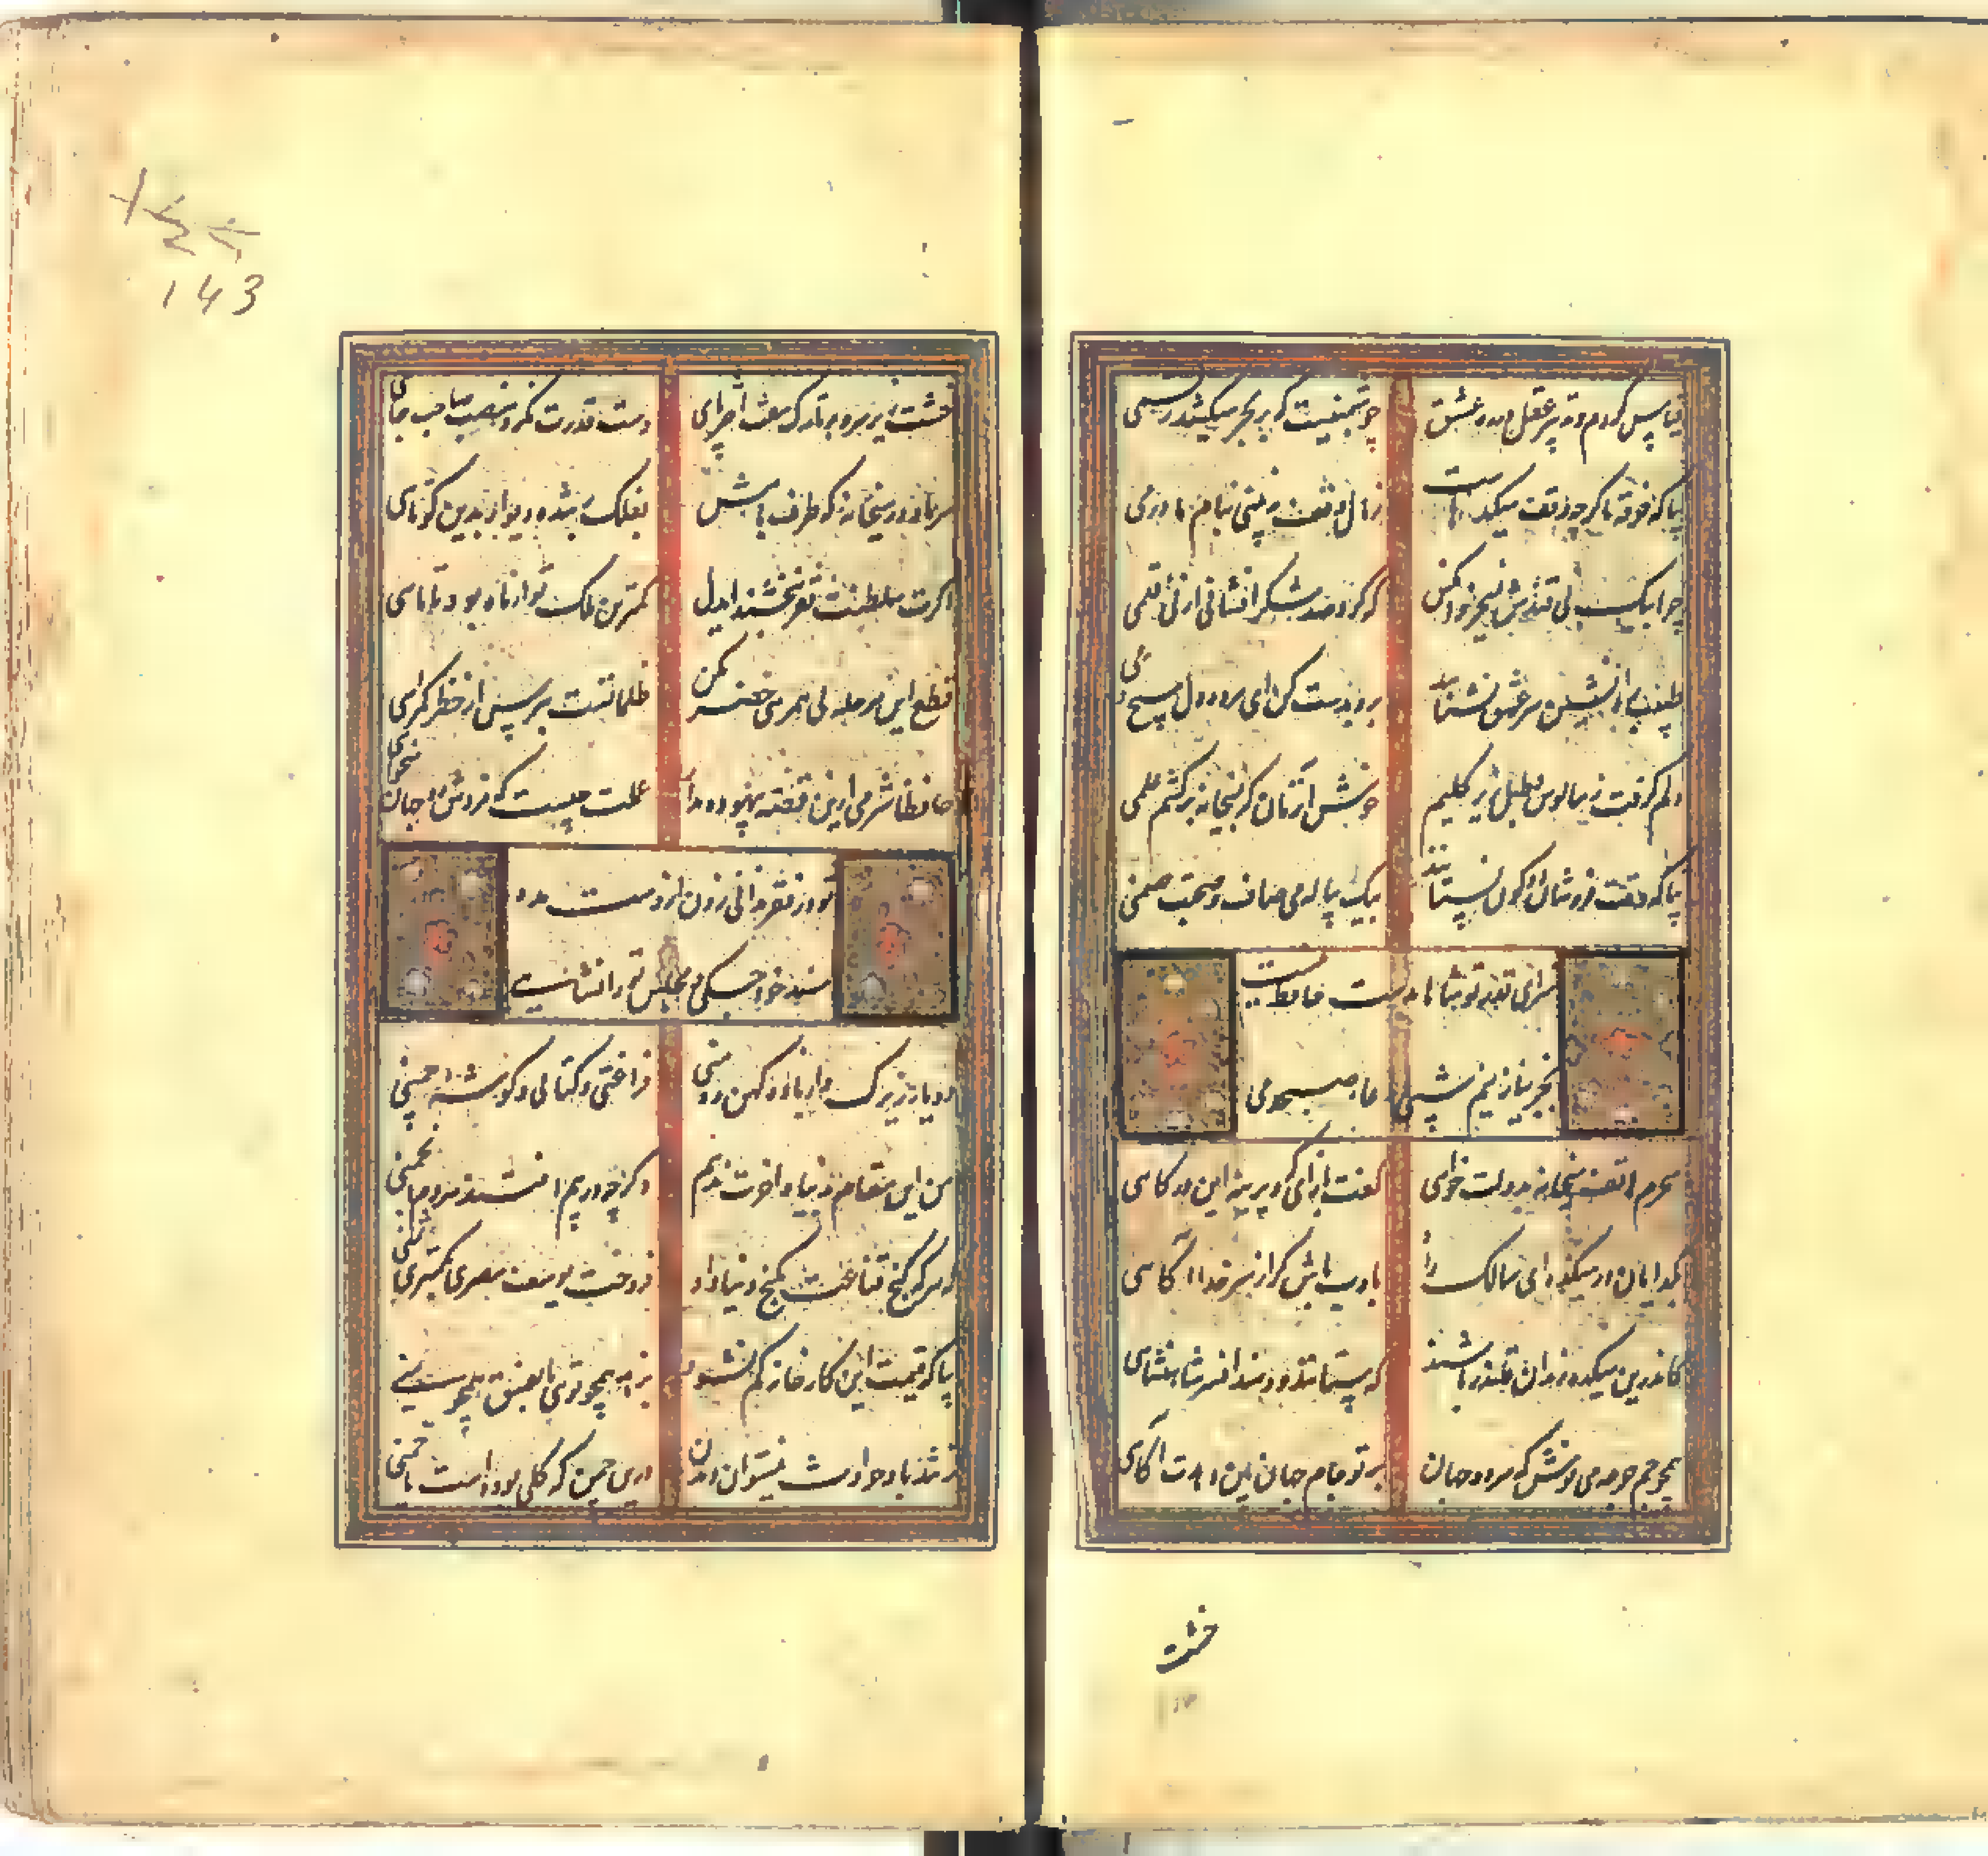 قیاس کردم و تدبیر عقل در ره عشق چو شبنمیست که بر بحر میکشد رقمی
بیا که خرقه ما گرچه وقف میکدهاست ز مال وقف نه بینی بنام ما درمی
چرا بیک نی قندش نمیخرند آنکس که کرد صد شکر افشانی از نی قلمی
طبیب راه نشین سر عشق نشناسد برو بدست کن ای مرده دل مسیح دمی
دلم گرفت ز سالوس و طبل زیر گلیم خوش آن زمان که بمیخانه برکشم علمی
بیا که وقت فروشان دو کون بستانند بیک پیاله می صاف و صحبت صنمی
سزای قدر تو شاها بدست حافظ نیست
بجز نیاز نیم شبی و دعاء صبحدمی
سحرم هاتف میخانه بدولت خواهی گفت باز آی که دیرینه این درگاهی
بگدایان در میکده ای سالک راه بادب باش گر از سر خدا آگاهی
کاندرین میکده رندان قلندر باشند که ستانند و دهند افسر شاهنشاهی
همچو جم جرعه می نوش که سر دو جهان پرتو جام جهان بین دهدت آگاهی
خشت
143
خشت زیر سر و بر تارک هفت اختر پای دست قدرت نگر و منصب صاحب جاهی
سر ما و در میخانه که طرف بامش بفلک بر شده دیوار بدین کوتاهی
اگرت سلطنت فقر ببخشند ایدل کمترین ملک تو از ماه بود تا ماهی
قطع این مرحله بی همرهی خضر مکن ظلماتست بترس از خطر گمراهی
حافظا شرمی ازین قصه بیهوده بدار عملت چیست که فردوس دو جهان میخواهی
تو در فقر ندانی زدن از دست مده
مسند خواجگی و مجلس تورانشاهی
دو یار زیرک و از باده کهن دو منی فراغتی و کتابی و گوشه چمنی
من این مقام بدنیا و آخرت ندهم اگرچه در پیم افتند مردم انجمنی
که هر که کنج قناعت بگنج دنیا داد فروخت یوسف مصری بکمترین ثمنی
بیا که قیمت این کارخانه کم نشود بزهد همچو توی یا بفسق همچو منی
ز تندباد حوادث نمیتوان دیدن درین چمن که گلی بوده است یا سمنی